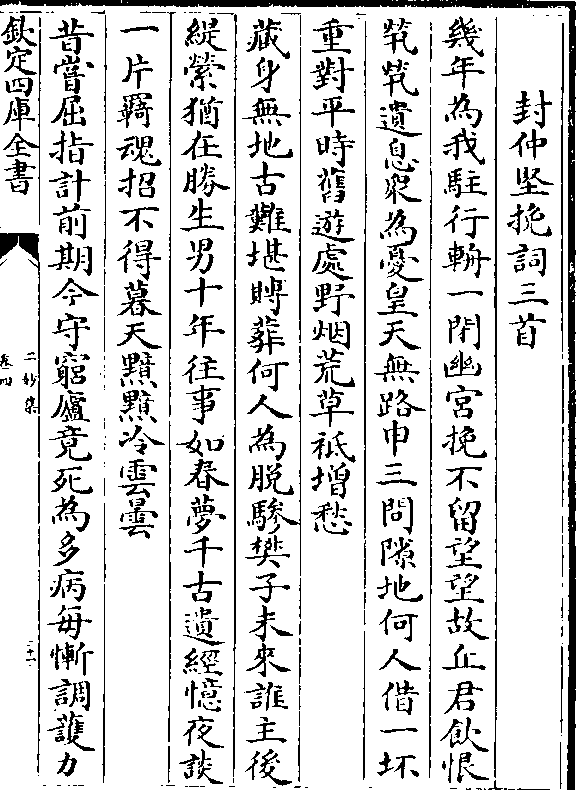 封仲堅挽詞三首
幾年為我駐行輈一閉幽宮挽不留望望故丘君飲恨
茕茕遺息寂為憂皇天無路申三問隙地何人借一坏
重對平時舊遊處野烟荒草祗增愁
藏身無地古難堪賻葬何人為脱驂樊子未來誰主後
緹縈猶在勝生男十年往事如春夢千古遺經憶夜談
一片羇魂招不得暮天黯黯冷雲曇
昔嘗屈指計前期今守窮廬竟死為多病每慚調護力
欽定四庫全書
二妙集
卷四
二十一